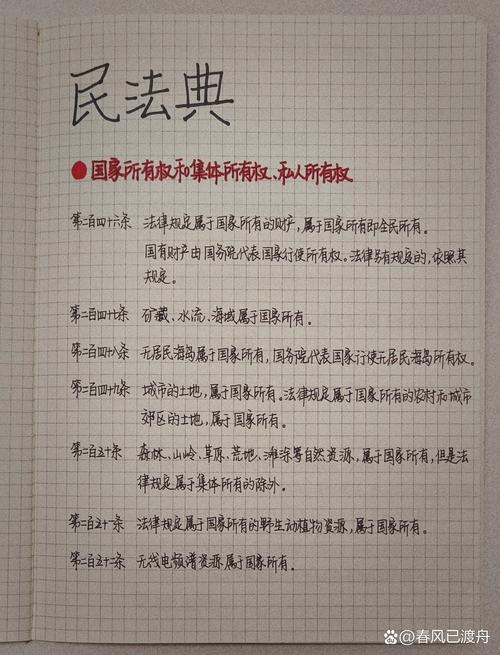 民法典
●国家所有权和集体所有权、私人所有权
第二百四十六条 法律规定属于国家所有的财产,属于国家所有即全民所有。
国有财产由国务院代表国家行使所有权。法律另有规定的,依照其
规定。
第二百四十七条 矿藏、水流、海域属于国家所有。
第二百四十八条 无居民海岛属于国家所有,国务院代表国家行使无居民海岛所有权。
第二百四十九条 城市的土地,属于国家所有。法律规定属于国家所有的农村和城市
郊区的土地,属于国家所有。
第二百五十条 森林、山岭、草原、荒地、滩涂等自然资源,属于国家所有,但是法
律规定属于集体所有的除外。
第二百五十一条 法律规定属于国家所有的野生动植物资源,属于国家所有。
第二百五十二条 无线电频谱资源属于国家所有。
@春风已渡舟